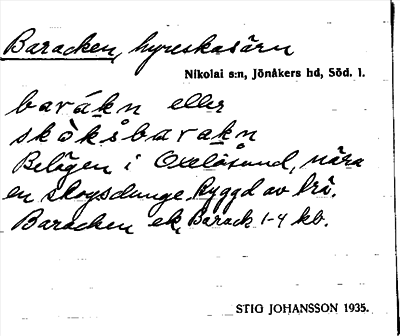 Baracken, hyreskasärn
Nikolai s:n, Jönåkers hd, Söd. l.
barákn eller
skòksbarakn
Belägen i Oxelösund, nära
en skogsdunge. Byggd av trä.
Baracken ek, Barack 1-4 kb.
STIG JOHANSSON 1935.